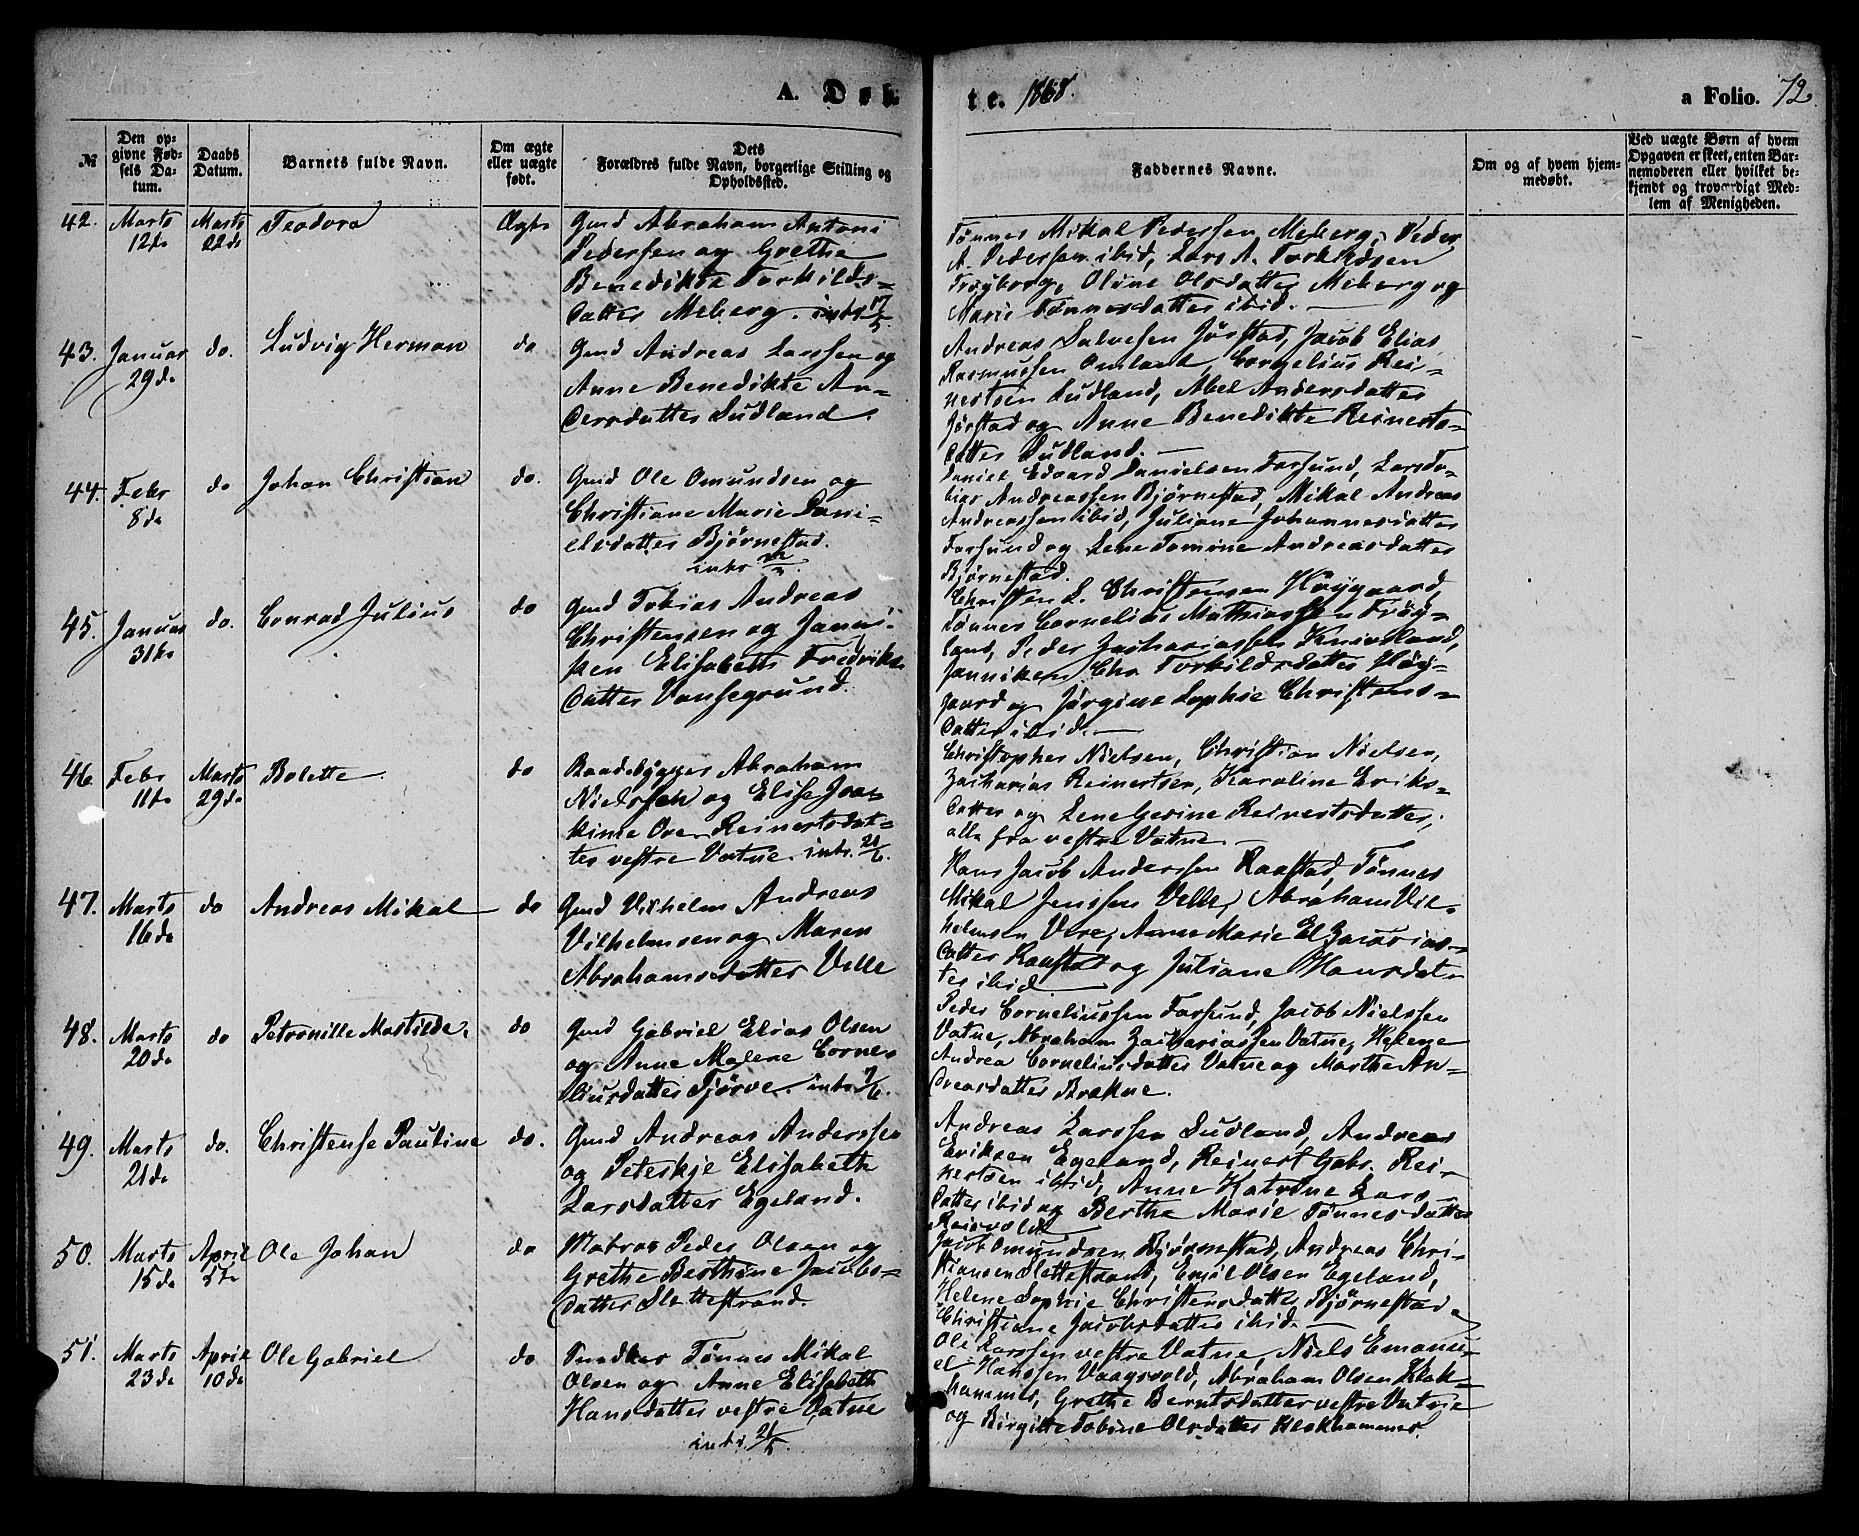 A. Døb-
te. 1868.
a Folio. 72
№
Den op-
givne Fød-
sels Da-
tum.
Daabs
Datum.
Barnets fulde Navn.
Om ægte
eller uægte
født.
Dets
Forældres fulde Navn, borgerlige Stilling og
Opholdssted.
Faddernes Navne.
Om og af hvem hjem-
medøbt.
Ved uægte Børn af hvem
Opgaven er skeet, enten Bar-
nemoderen eller hvilket be-
kjendt og troværdigt Med-
lem af Menigheden.
42. Marts 12de
Marts 22de
Teodora
Ægte
Gmd Abraham Antoni
Pedersen og Grethe
Benedikte Torkilds-
datter Meberg. intr 17/5.
Tønnes Mikal Pedersen Meberg, Peder
A. Pedersen ibid, Lars A. Torkildsen
Frøyborg, Oline Olsdatter Meberg og
Marie Tønnesdatter ibid.
43. Januar 29de
do.
Ludvig Herman
do
Gmd Andreas Larssen og
Anne Benedikte An-
dersdatter Sudland.
Andreas Salvesen Jørstad, Jacob Elias
Rasmussen Omland, Cornelius Rei-
nertsen Sudland, Abel Andersdatter
Jørstad og Anne Benedikte Reinerts-
datter Sudland.
44. Febr 8de
do
Johan Christian
do.
Gmd Ole Omundsen og
Christiane Marie Dani-
elsdatter Bjørnestad.
intr
Daniel Edvard Danielsen Farsund, Lars To-
bias Andreassen Bjørnestad, Mikal Andreas
Andreassen ibid, Juliane Johannesdatter
Farsund og Lene Tomine Andreasdatter
Bjørnestad.
45. Januar 31te
do.
Conrad Julius
do
Gmd Tobias Andreas
Christensen og Janni-
ken Elisabeth Fredriks-
datter Vansegrund.
Christen L. Christensen Høygaard,
Tønnes Cornelius Mathiassen Frøy-
land, Peder Zachariassen Knivsland,
Janniken Chr Torkildsdatter Høy-
gaard og Jørgine Sophie Christens-
datter ibid.
46. Febr 11te
Marts 29de
Bolette
do
Baadsbygger Abraham
Nielssen og Elise Joa-
kime Ove Reinertsdat-
ter vestre Vatne. intr.
Christopher Nielsen, Christian Nielsen,
Zacharias Reinertsen, Karoline Eriks-
datter og Lene Gerine Reinertsdatter,
alle fra vestre Vatne.
47. Marts 16de
do
Andreas Mikal
do
Gmd Vilhelm Andreas
Vilhelmsen og Maren
Abrahamsdatter Velle
Hans Jacob Anderssen Raastad, Tønnes
Mikal Jenssen Velle, Abraham Vil-
helmsen Vere, Anne Marie El. Zacarias-
datter Raastad og Juliane Hansdat-
ter ibid
48. Marts 20de
do
Petronille Mastilde.
do
Gmd Gabriel Elias Olsen
og Anne Malene Corne-
liusdatter Tjørve. intr 7/6.
Peder Corneliussen Farsund, Jacob Nielssen
Vatne, Abraham Zachariassen Vatne, Helene
Andrea Corneliusdatter Vatne og Marthe An-
dreasdatter Brekne.
49. Marts 21de
do.
Christense Pauline
do.
Gmd Andreas Anderssen
og Peterskje Elisabeth
Larsdatter Egeland.
Andreas Larssen Sudland, Andreas
Eriksen Egeland, Reinert Gabr. Rei-
nertsen ibid, Anne Katrine Lars-
datter ibid og Berthe Marie Tønnesdatter
50. Marts 15de
April 5te
Ole Johan
do
Matros Peder Olsen og
Grethe Berthine Jacobs-
datter Slettestrand.
Jacob Omundsen Bjørnestad, Andreas Chri-
stiansen Slettestrand, Emil Olsen Egeland,
Helene Sophie Christensdatter Bjørnestad og
Christiane Jacobsdatter ibid.
51. Marts 23de
April 10de
Ole Gabriel
do
Snedker Tønnes Mikal
Olsen og Anne Elisabeth
Hansdatter vestre Vatne
intr. 21/5.
Ole Larssen vestre Vatne, Niels Emanu-
el Hanssen Vaagsvold, Abraham Olsen Klok-
hammer, Grethe Berntsdatter vestre Vatne
og Birgitte Tobine Olsdatter Klokhammer.